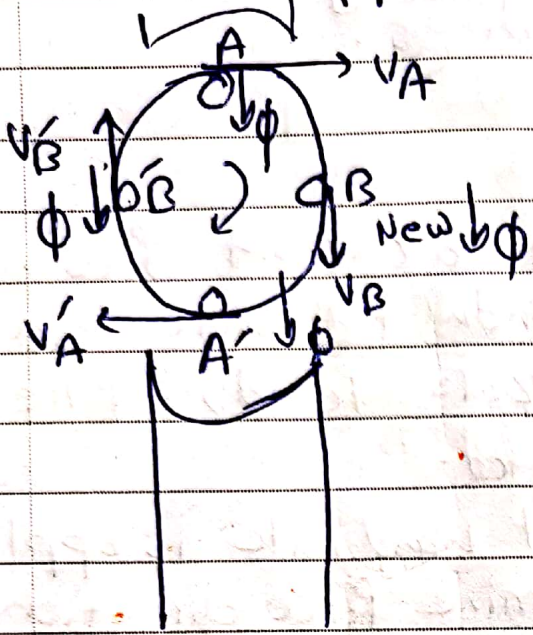 A
V_A
V_B′
φ
φ
B′
B
New φ
V_B
V_A′
A′
φ